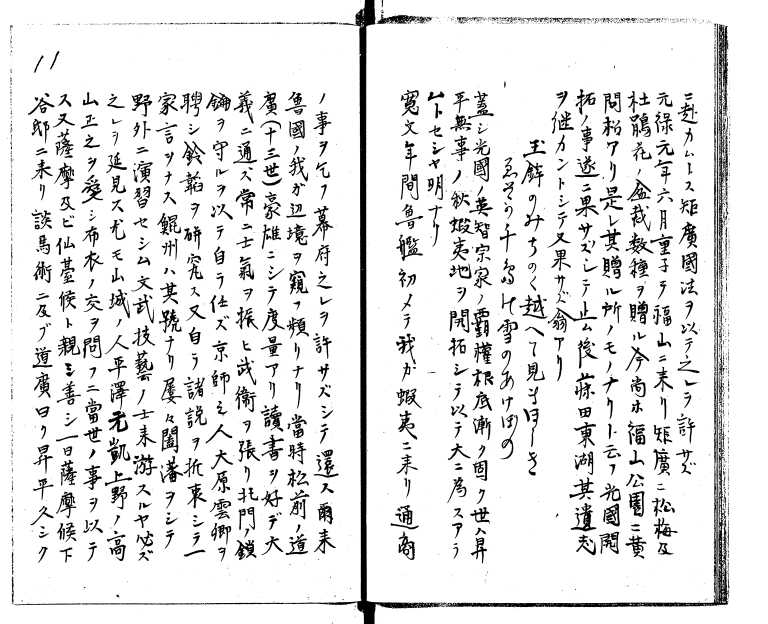 ニ赴カムトス矩廣國法ヲ以テ之レヲ許サズ
元禄元年六月重子テ福山ニ来リ矩廣ニ松梅及
杜鵑花ノ盆栽数種ヲ贈ル今尚ホ福山公園ニ黄
問松アリ是レ其贈ル所ノモノナリト云フ光國開
拓ノ事遂ニ果サズシテ止ム後藤田東湖其遺志
ヲ継カントシテ又果サズ翁アリ
玉鉾のみちのく越へて見まほしき
ゑぞの千島の雪のあけぼの
蓋シ光國ノ英智宗家ノ覇權根底漸ク固ク世ハ昇
平無事ノ秋蝦夷地ヲ開拓シテ以テ大ニ為スアラ
ムトセシヤ明ナリ
寛文年間魯艦初メテ我カ蝦夷ニ来リ通商
ノ事ヲ乞フ幕府之レヲ許サズシテ還ス爾来
魯國ノ我ガ辺境ヲ窺フ頻リナリ當時松前ノ道
廣(十三世)豪雄ニシテ度量アリ讀書ヲ好デ大
義ニ通ズ常ニ士氣ヲ振ヒ武衛ヲ張リ北門ノ鎖
鑰ヲ守ルヲ以テ自ラ任ズ京師之人大原雲卿ヲ
聘シ鈴韜ヲ研究ス又自ラ諸説ヲ折衷シテ一
家言ヲナス鯤州ハ其號ナリ屡々闔藩ヲシテ
野外ニ演習セシム文武技藝ノ士来游スルヤ必ズ
之レヲ延見ス尤モ山城ノ人平澤元凱上野ノ高
山正之ヲ愛シ布衣ノ交ヲ問フニ當世ノ事ヲ以テ
ス又薩摩及ビ仙臺候ト親ミ善シ一日薩摩候下
谷邸ニ来リ談馬術ニ及ブ道廣曰ク昇平久シク
11